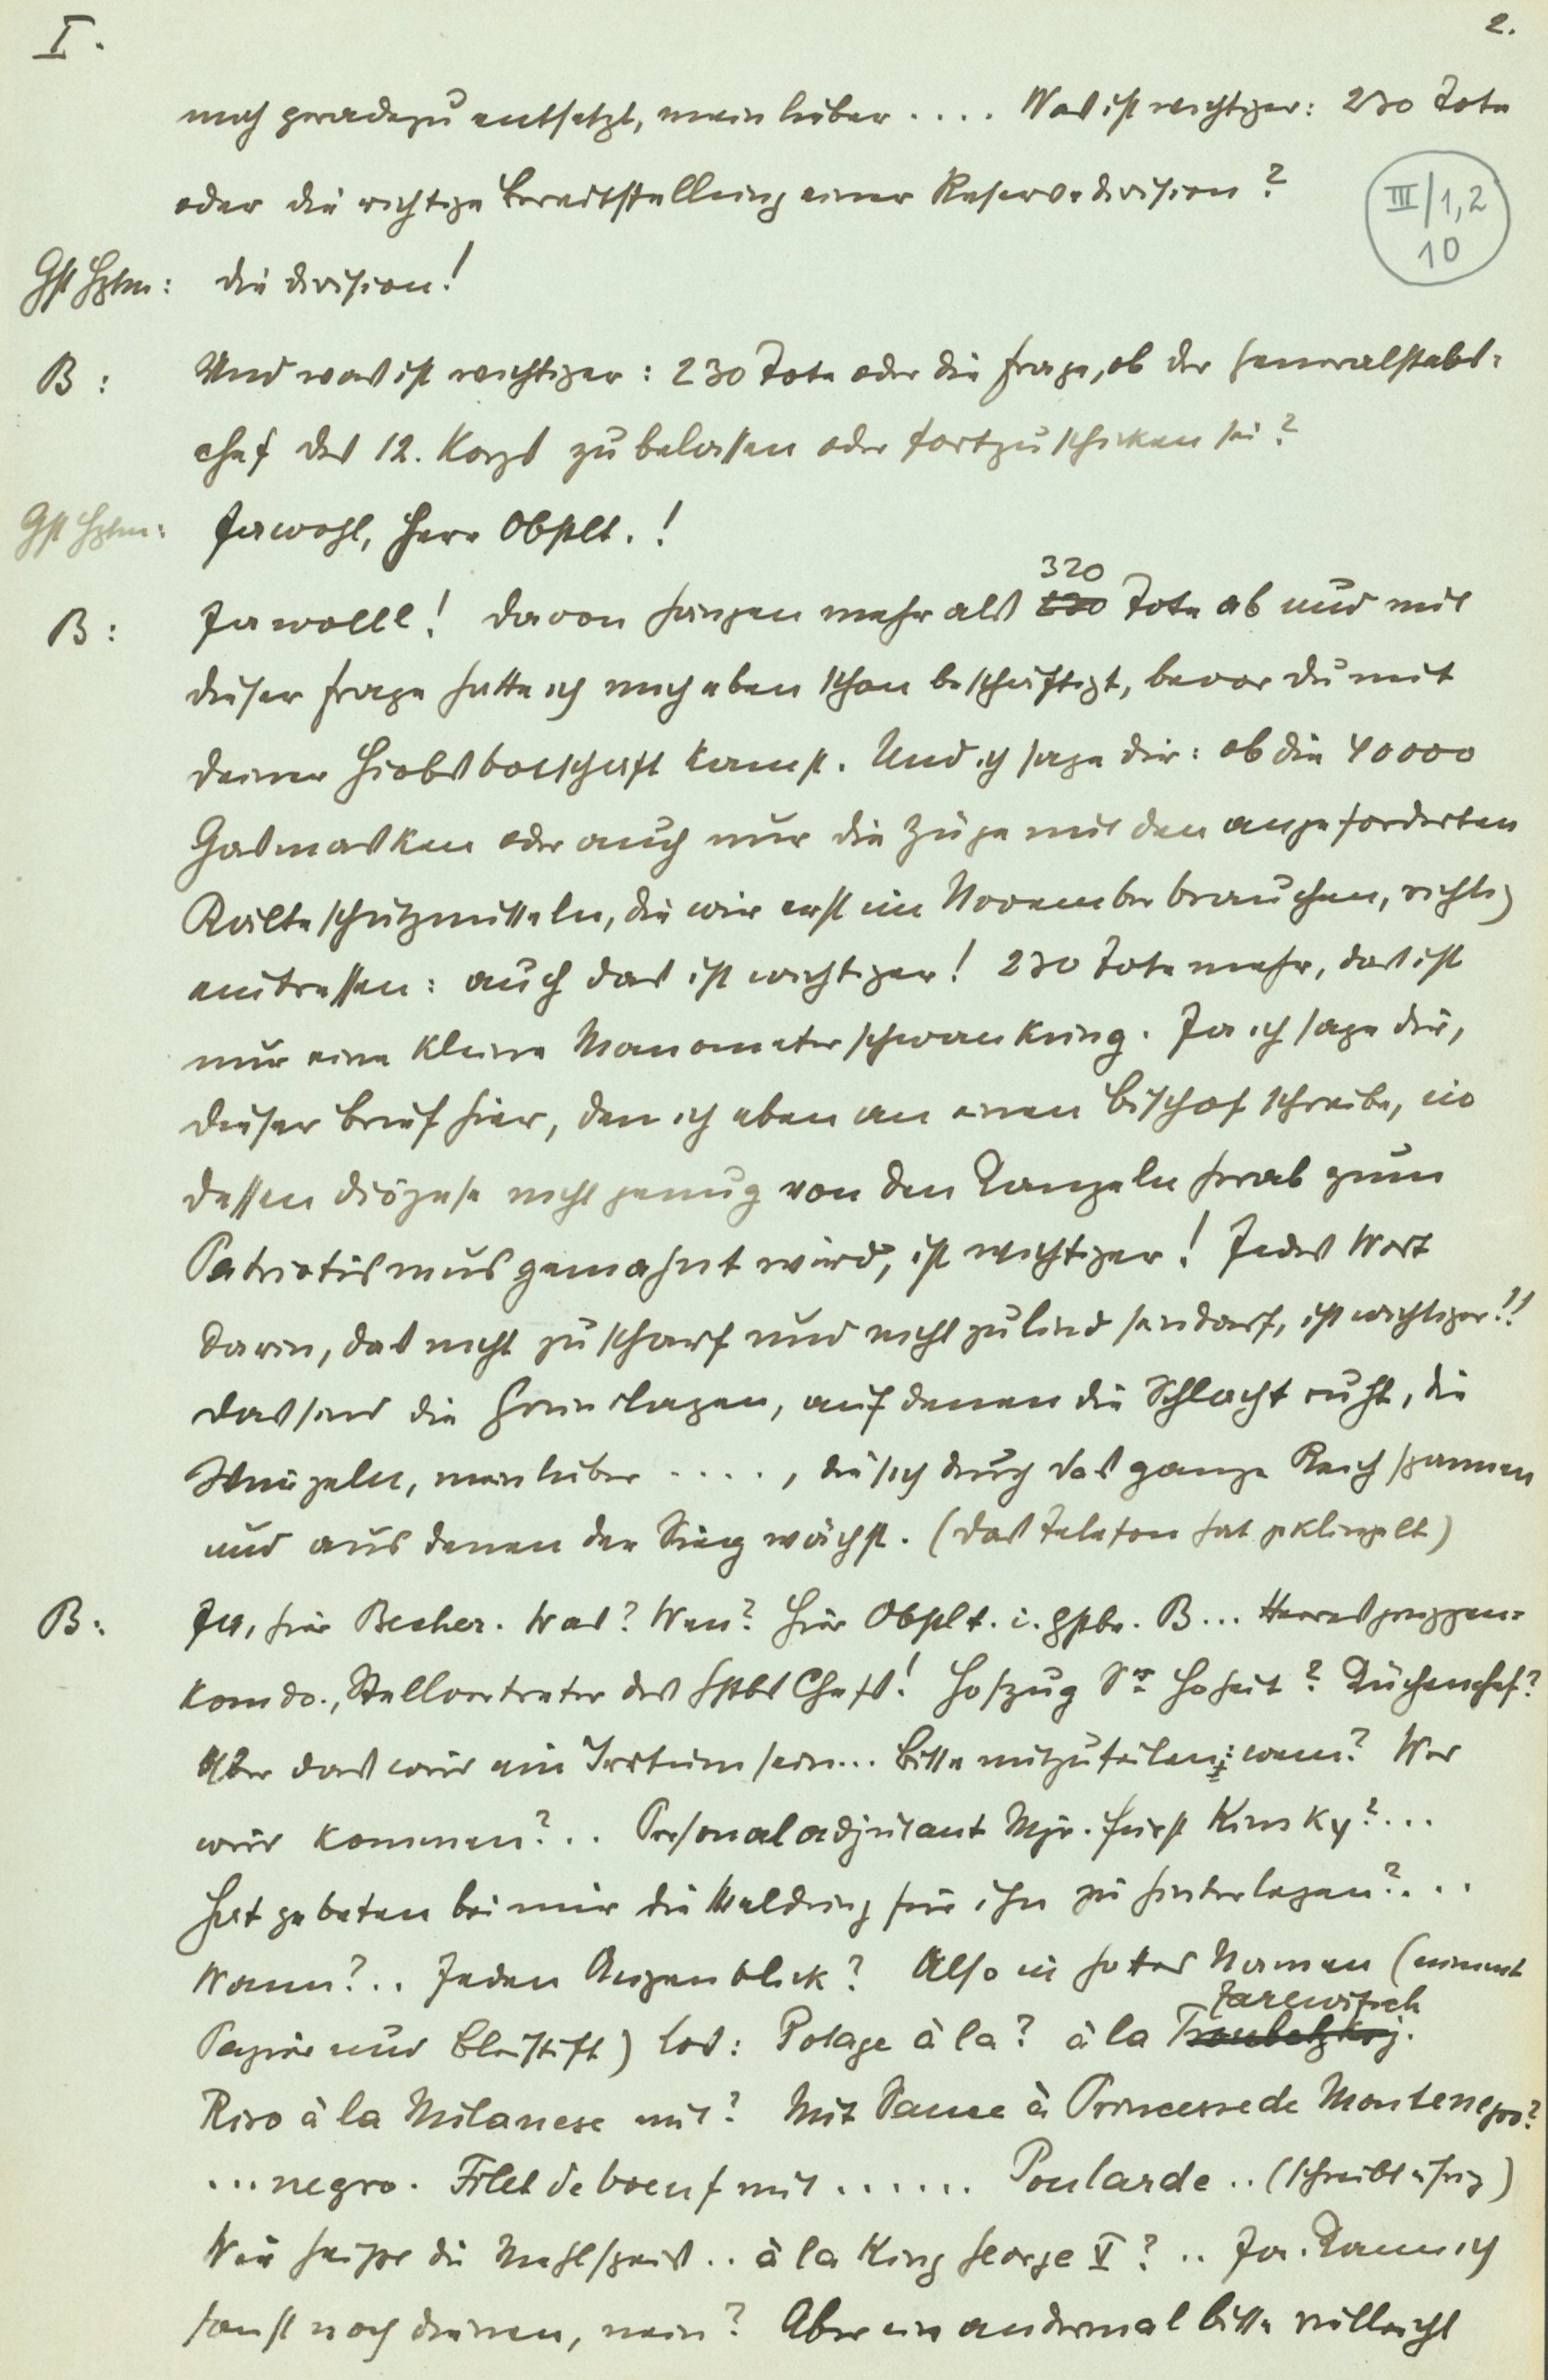 I.
2.
mich geradezu entsetzt, mein lieber .... Was ist wichtiger: 230 Tote
oder die richtige Bereitstellung einer Reservedivision?
III/1,2
10
Gst Hptm: die Division!
B: Und was ist wichtiger: 230 Tote oder die Frage, ob der Generalstabs-
chef des 12. Korps zu belassen oder fortzuschicken sei?
Gst Hptm: Jawohl, Herr Obstlt.!
320
B: Jawolll! Davon hängen mehr als 230 Tote ab und mit
dieser Frage hatte ich mich eben schon beschäftigt, bevor du mit
deiner Hiobsbotschaft kamst. Und ich sage dir: ob die 40000
Gasmasken oder auch nur die Züge mit den angeforderten
Kälteschutzmitteln, die wir erst im November brauchen, richtig
eintreffen: auch das ist wichtiger! 230 Tote mehr, das ist
nur eine kleine Manometerschwankung. Ja ich sage dir,
dieser Brief hier, den ich eben an einen Bischof schreibe, in
dessen Diözese nicht genug von den Kanzeln herab zum
Patriotismus gemahnt wird, ist wichtiger! Jedes Wort
darin, das nicht zu scharf und nicht zu lind sein darf, ist wichtiger!!
Das sind die Grundlagen, auf denen die Schlacht ruht, die
Wurzeln, mein lieber ....., die sich durch das ganze Reich spannen
und aus denen der Sieg wächst. (Das Telefon hat geklingelt)
B: Ja, hier Becher. Was? Wen? Hier Obstlt. i. Gstbe. B... Heeresgruppen-
komdo., Stellvertreter des Gstbs Chefs! Hofzug Sr Hoheit? Küchenchef?
Aber das wird ein Irrtum sein... Bitte mitzuteilen: wem? Wer
wird kommen?.. Personaladjutant Mjr. Fürst Kinsky?...
Hat gebeten bei mir die Meldung für ihn zu hinterlegen?...
Wann?.. Jeden Augenblick? Also in Gottes Namen (nimmt
Zarewitsch
Papier und Bleistift) los: Potage à la? à la Troubetzkoj.
Riso à la Milanese mit? Mit Sauce à Princesse de Montenegro?
...negro. Filet de boeuf mit ...... Poularde .. (schreibt eifrig)
Wie heißt die Mehlspeis .. à la King George V? .. Ja. Kann ich
sonst noch dienen, nein? Aber ein andermal bitte vielleicht